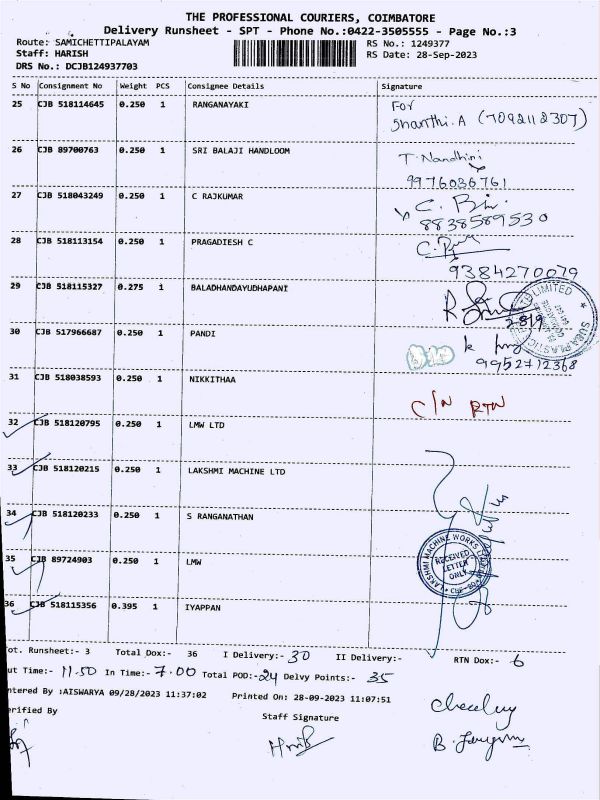 THE PROFESSIONAL COURIERS, COIMBATORE
Delivery Runsheet - SPT - Phone No.:0422-3505555 - Page No.:3
Route: SAMICHETTIPALAYAM RS No.: 1249377
Staff: HARISH RS Date: 28-Sep-2023
DRS No.: DCJB124937703
S No Consignment No Weight PCS Consignee Details Signature
25 CJB 518114645 0.250 1 RANGANAYAKI For
Shanthi.A (7092112307)
26 CJB 89700763 0.250 1 SRI BALAJI HANDLOOM T. Nandhini
9976036761
27 CJB 518043249 0.250 1 C RAJKUMAR C.
8838589530
28 CJB 518113154 0.250 1 PRAGADIESH C C.
9384270079
29 CJB 518115327 0.275 1 BALADHANDAYUDHAPANI R
28/9
LIMITED
30 CJB 517966687 0.250 1 PANDI k
9952712368
31 CJB 518038593 0.250 1 NIKKITHAA C/N RTN
32 CJB 518120795 0.250 1 LMW LTD
33 CJB 518120215 0.250 1 LAKSHMI MACHINE LTD
34 CJB 518120233 0.250 1 S RANGANATHAN
LAKSHMI MACHINE WORKS
RECEIVED
LETTER
ONLY
35 CJB 89724903 0.250 1 LMW
36 CJB 518115356 0.395 1 IYAPPAN
ot. Runsheet:- 3 Total Dox:- 36 I Delivery:- 30 II Delivery:- RTN Dox:- 6
ut Time:- 11.50 In Time:- 7.00 Total POD:- 24 Delvy Points:- 35
ntered By :AISWARYA 09/28/2023 11:37:02 Printed On: 28-09-2023 11:07:51
erified By Staff Signature
B.